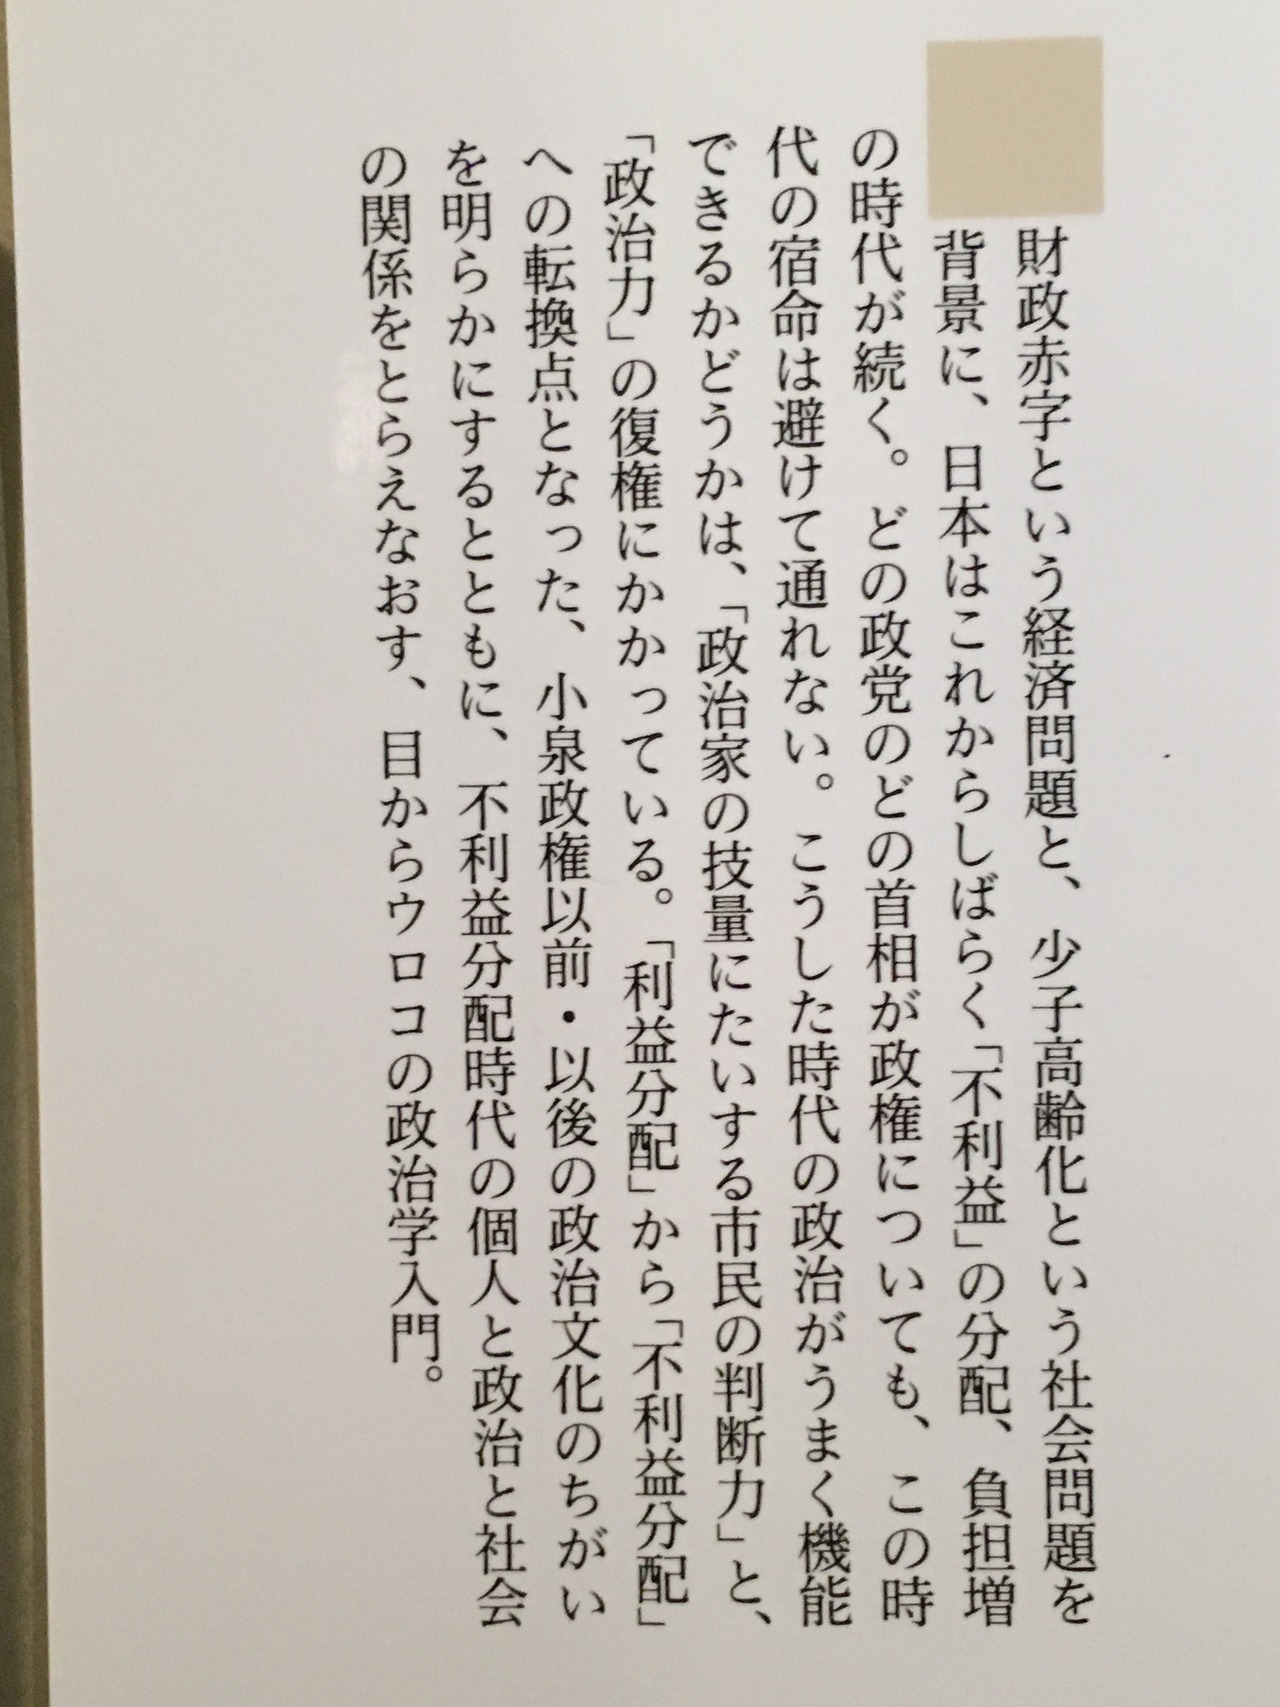 財政赤字という経済問題と、少子高齢化という社会問題を
背景に、日本はこれからしばらく「不利益」の分配、負担増
の時代が続く。どの政党のどの首相が政権についても、この時
代の宿命は避けて通れない。こうした時代の政治がうまく機能
できるかどうかは、「政治家の技量にたいする市民の判断力」と、
「政治力」の復権にかかっている。「利益分配」から「不利益分配」
への転換点となった、小泉政権以前・以後の政治文化のちがい
を明らかにするとともに、不利益分配時代の個人と政治と社会
の関係をとらえなおす、目からウロコの政治学入門。